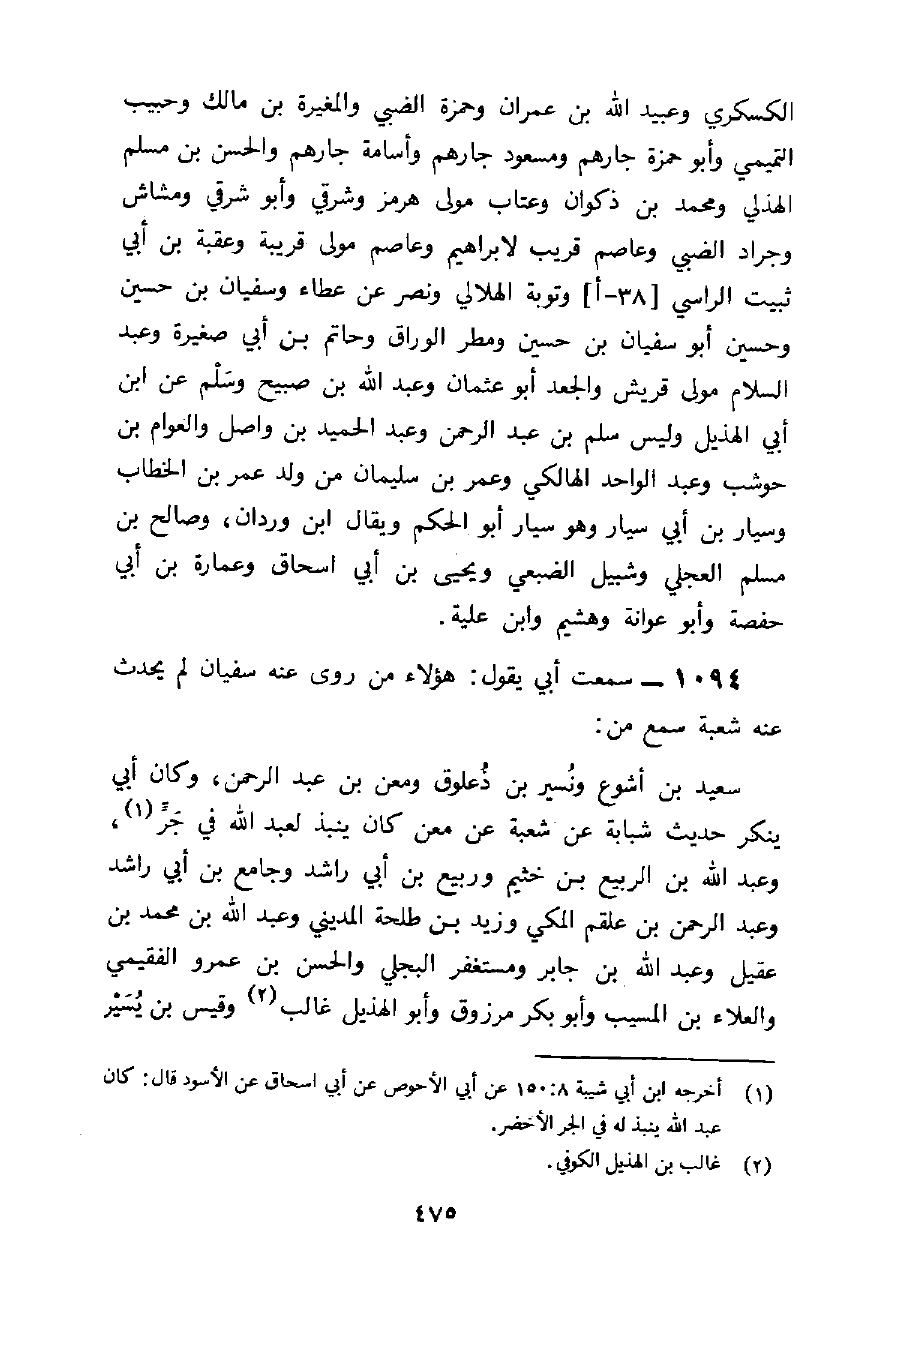 الكسكري وعبيد الله بن عمران وحمزة الضبي والمغيرة بن مالك وحبيب
التميمي وأبو حمزة جارهم ومسعود جارهم وأسامة جارهم والحسن بن مسلم
الهذلي ومحمد بن ذكوان وعتاب مولى هرمز وشرقي وأبو شرقي ومشاش
وجراد الضبي وعاصم قريب لابراهيم وعاصم مولى قريبة وعقبة بن أبي
ثبيت الراسي [٣٨-أ] وتوبة الهلالي ونصر عن عطاء وسفيان بن حسين
وحسين أبو سفيان بن حسين ومطر الوراق وحاتم بن أبي صغيرة وعبد
السلام مولى قريش والجعد أبو عثمان وعبد الله بن صبيح وسَلْم عن ابن
أبي الهذيل وليس سلم بن عبد الرحمن وعبد الحميد بن واصل والعوام بن
حوشب وعبد الواحد الهالكي وعمر بن سليمان من ولد عمر بن الخطاب
وسيار بن أبي سيار وهو سيار أبو الحكم ويقال ابن وردان، وصالح بن
مسلم العجلي وشبيل الضبعي ويحيى بن أبي اسحاق وعمارة بن أبي
حفصة وأبو عوانة وهشيم وابن علية.
١٠٩٤ ــ سمعت أبي يقول: هؤلاء من روى عنه سفيان لم يحدث
عنه شعبة سمع من:
سعيد بن أشوع ونُسير بن ذُعلوق ومعن بن عبد الرحمن، وكان أبي
ينكر حديث شبابة عن شعبة عن معن كان ينبذ لعبد الله في جَرٍّ(١)،
وعبد الله بن الربيع بن خثيم وربيع بن أبي راشد وجامع بن أبي راشد
وعبد الرحمن بن علقم المكي وزيد بن طلحة المديني وعبد الله بن محمد بن
عقيل وعبد الله بن جابر ومستغفر البجلي والحسن بن عمرو الفقيمي
والعلاء بن المسيب وأبو بكر مرزوق وأبو الهذيل غالب(٢) وقيس بن يُسَيْر
(١) أخرجه ابن أبي شيبة ٨:١٥٠ عن أبي الأحوص عن أبي اسحاق عن الأسود قال: كان
عبد الله ينبذ له في الجر الأخضر.
(٢) غالب بن الهذيل الكوفي.
٤٧٥